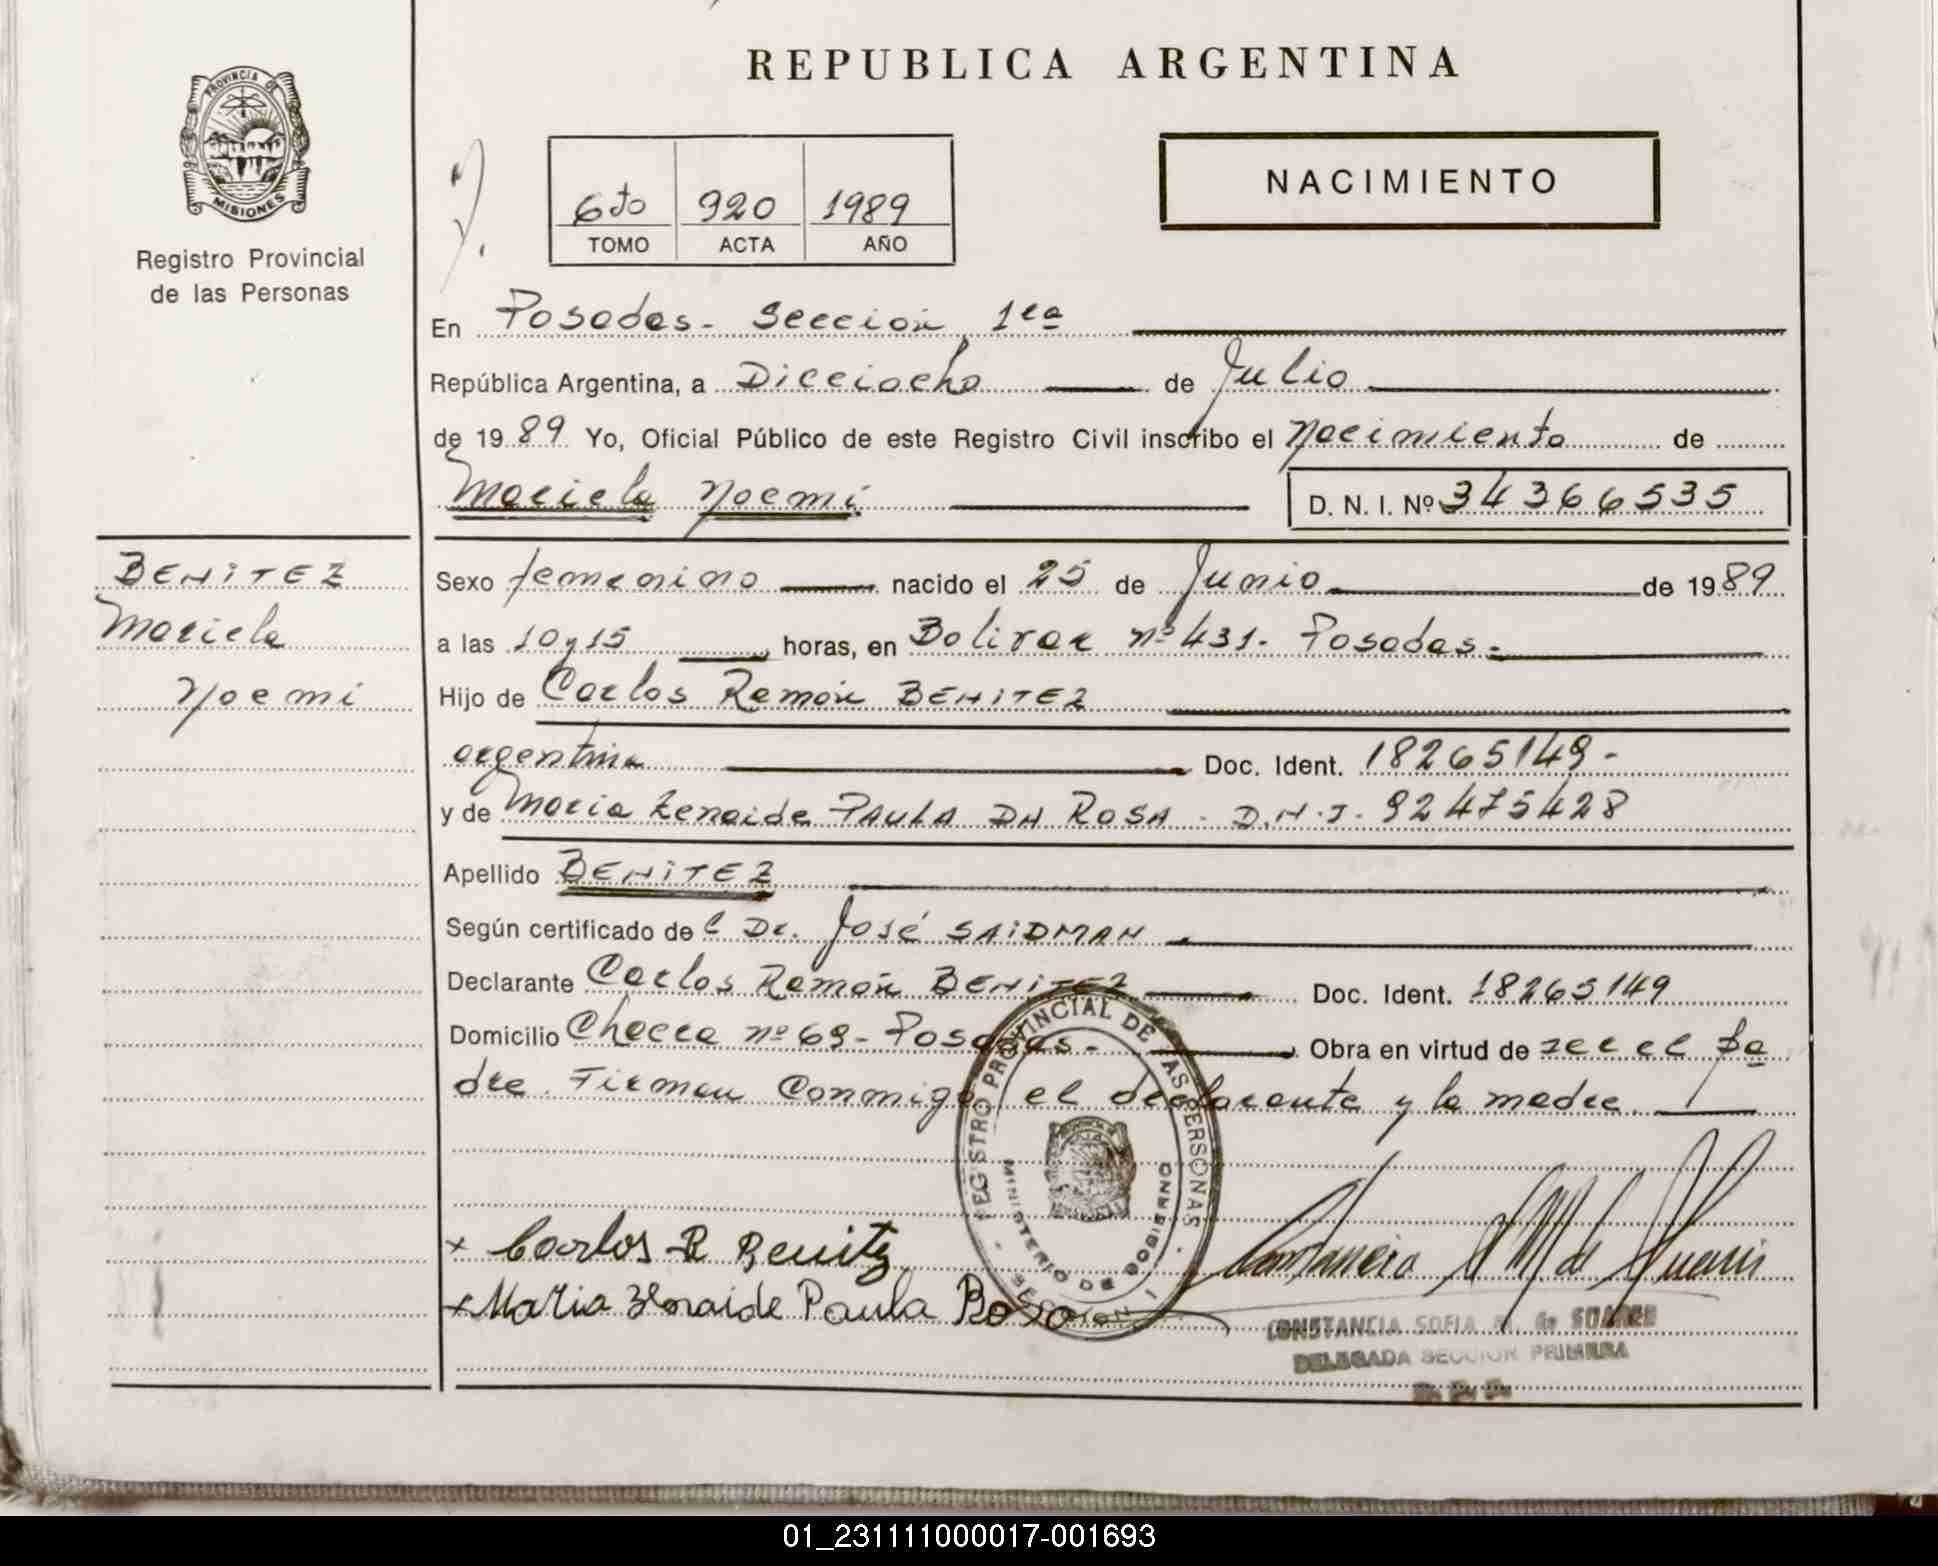 REPUBLICA ARGENTINA
PROVINCIA DE
MISIONES
Registro Provincial
de las Personas
6to 920 1989
TOMO ACTA AÑO
NACIMIENTO
En Posadas - Sección 1ra
República Argentina, a Dieciocho de Julio
de 1989 Yo, Oficial Público de este Registro Civil inscribo el Nacimiento de
Mariela Noemi D. N. I. Nº 34366535
BENITEZ
Mariela
Noemi
Sexo femenino nacido el 25 de Junio de 1989
a las 10 y 15 horas, en Bolivar nº 431 - Posadas -
Hijo de Carlos Ramón BENITEZ
argentina Doc. Ident. 18265149 -
y de Maria Zenaide PAULA DA ROSA - D.N.I. 92475428
Apellido BENITEZ
Según certificado de C Dr. José SAIDMAN
Declarante Carlos Ramón BENITEZ Doc. Ident. 18265149
Domicilio Chacra nº 69 - Posadas - Obra en virtud de ser el pa
dre. Firman Conmigo el declarante y la madre.
REGISTRO PROVINCIAL DE LAS PERSONAS
MINISTERIO DE GOBIERNO
SECCION I
x Carlos R Benitz
x Maria Zenaide Paula Rosa
Constancia S M de Suarez
CONSTANCIA SOFIA M. de SUAREZ
DELEGADA SECCION PRIMERA
01_231111000017-001693